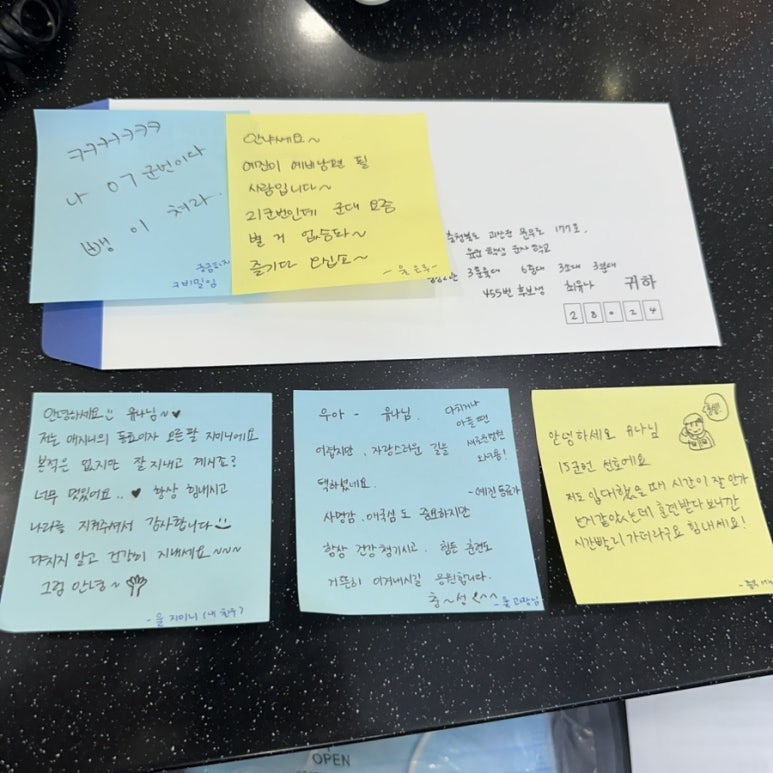 ㅋㅋㅋㅋㅋㅋㅋ
나 07군번이다
뺑이 쳐라.
안냐세요~
예진이 예비남편 될
사람입니다~
21군번인데 군대 요즘
별 거 없습돠~
즐기다 오십쇼~
충청북도 괴산군
177호,
육군 학생 군사 학교
3중대 3소대 3분대
455번 후보생 최유나 귀하
28024
안녕하세요 유나님~♥
저는
동료이자 오른팔 지미니에요
본적은 없지만 잘 지내고 계시죠?
너무 멋있어요..♥ 항상 힘내시고
나라를 지켜주셔서 감사합니다
다치지 않고 건강히 지내세요~~~
그럼 안녕~
지미니 (내 친구)
우아- 유나님.
다치거나
아플 땐
오세용!
- 예진 동료가
어렵지만, 자랑스러운 길을
택하셨네요.
사명감, 애국심도 중요하지만
항상 건강 챙기시고, 힘든 훈련도
거뜬히 이겨내시길 응원합니다.
충~성 <^^
과장님
충성!
안녕하세요 유나님
15군번 선호에요
저도 입대했을 때 시간이 잘 안가
는거 같았는데 훈련받다 보니깐
시간빨리 가더라구요 힘내세요!
OPEN